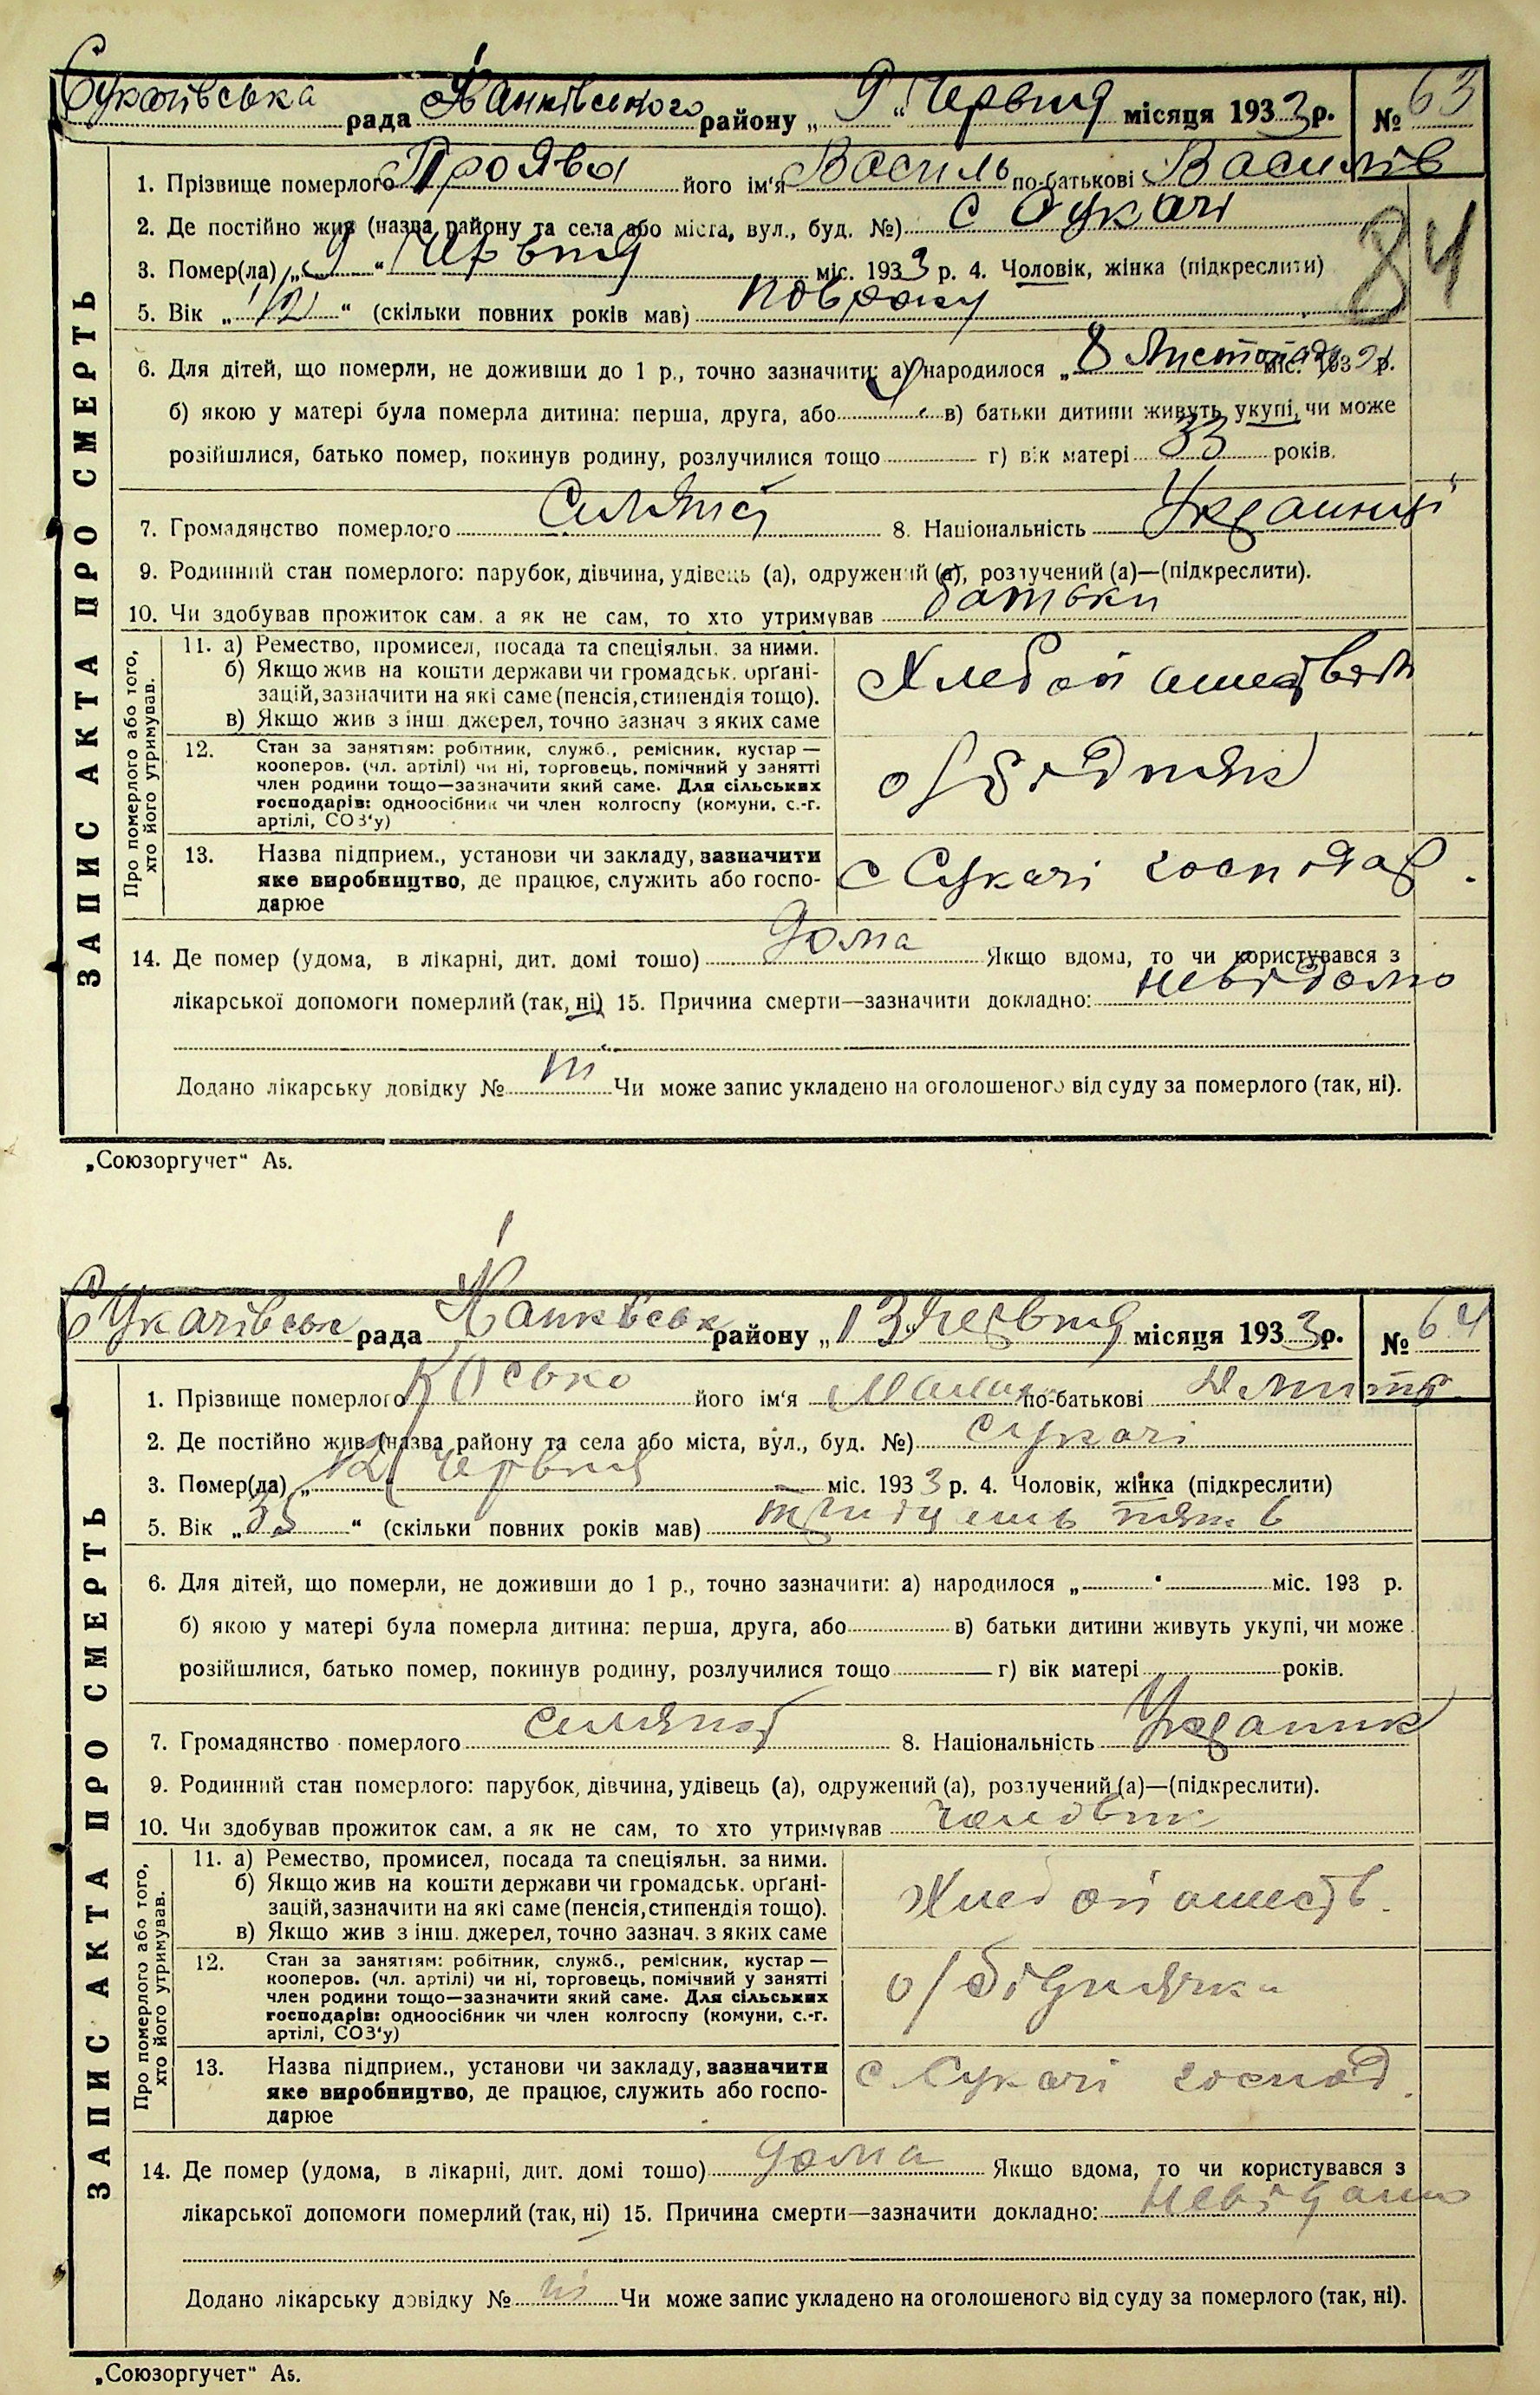 Сукачівська рада Іванківського району „9“ Червня місяця 1933 р. № 63
1. Прізвище померлого Проява його ім'я Василь по-батькові Василів
2. Де постійно жив (назва району та села або міста, вул., буд. №) с Сукачі
84
3. Помер(ла) „9“ Червня міс. 1933 р. 4. Чоловік, жінка (підкреслити)
5. Вік „1/2“ (скільки повних років мав) пів року
6. Для дітей, що померли, не доживши до 1 р., точно зазначити: а) народилося „8 Листопада міс. 1932 р.
б) якою у матері була померла дитина: перша, друга, або 4 в) батьки дитини живуть укупі, чи може
розійшлися, батько помер, покинув родину, розлучилися тощо г) вік матері 33 років.
7. Громадянство померлого 8. Національність
9. Родинний стан померлого: парубок, дівчина, удівець (а), одружений (а), розлучений (а)—(підкреслити).
10. Чи здобував прожиток сам, а як не сам, то хто утримував батьки
ЗАПИС АКТА ПРО СМЕРТЬ
Про померлого або того, хто його утримував.
11. а) Ремество, промисел, посада та спеціяльн. за ними.
б) Якщо жив на кошти держави чи громадськ. орґані-
зацій, зазначити на які саме (пенсія, стипендія тощо).
в) Якщо жив з інш. джерел, точно зазнач. з яких саме
12. Стан за заняттям: робітник, служб., ремісник, кустар —
кооперов. (чл. артілі) чи ні, торговець, помічний у занятті
член родини тощо—зазначити який саме. Для сільських
господарів: одноосібник чи член колгоспу (комуни, с.-г.
артілі, СОЗ'у)
о/бідняк
13. Назва підприєм., установи чи закладу, зазначити
яке виробництво, де працює, служить або госпо-
дарює
с Сукачі господар.
14. Де помер (удома, в лікарні, дит. домі тощо) дома Якщо вдома, то чи користувався з
лікарської допомоги померлий (так, ні) 15. Причина смерти—зазначити докладно: невідомо
Додано лікарську довідку № ні Чи може запис укладено на оголошеного від суду за померлого (так, ні).
„Союзоргучет“ А5.
Сукачівськ рада району „13 червня місяця 1933 р. № 64
1. Прізвище померлого його ім'я по-батькові
2. Де постійно жив (назва району та села або міста, вул., буд. №) Сукачі
3. Помер(ла) „12“ Червня міс. 1933 р. 4. Чоловік, жінка (підкреслити)
5. Вік „35“ (скільки повних років мав) тридцять пять
6. Для дітей, що померли, не доживши до 1 р., точно зазначити: а) народилося „ “ міс. 193 р.
б) якою у матері була померла дитина: перша, друга, або в) батьки дитини живуть укупі, чи може
розійшлися, батько помер, покинув родину, розлучилися тощо г) вік матері років.
7. Громадянство померлого 8. Національність
9. Родинний стан померлого: парубок, дівчина, удівець (а), одружений (а), розлучений (а)—(підкреслити).
10. Чи здобував прожиток сам, а як не сам, то хто утримував
ЗАПИС АКТА ПРО СМЕРТЬ
Про померлого або того, хто його утримував.
11. а) Ремество, промисел, посада та спеціяльн. за ними.
б) Якщо жив на кошти держави чи громадськ. орґані-
зацій, зазначити на які саме (пенсія, стипендія тощо).
в) Якщо жив з інш. джерел, точно зазнач. з яких саме
12. Стан за заняттям: робітник, служб., ремісник, кустар —
кооперов. (чл. артілі) чи ні, торговець, помічний у занятті
член родини тощо—зазначити який саме. Для сільських
господарів: одноосібник чи член колгоспу (комуни, с.-г.
артілі, СОЗ'у)
о/біднячка
13. Назва підприєм., установи чи закладу, зазначити
яке виробництво, де працює, служить або госпо-
дарює
с Сукачі господ.
14. Де помер (удома, в лікарні, дит. домі тощо) дома Якщо вдома, то чи користувався з
лікарської допомоги померлий (так, ні) 15. Причина смерти—зазначити докладно: невідомо
Додано лікарську довідку № ні Чи може запис укладено на оголошеного від суду за померлого (так, ні).
„Союзоргучет“ А5.